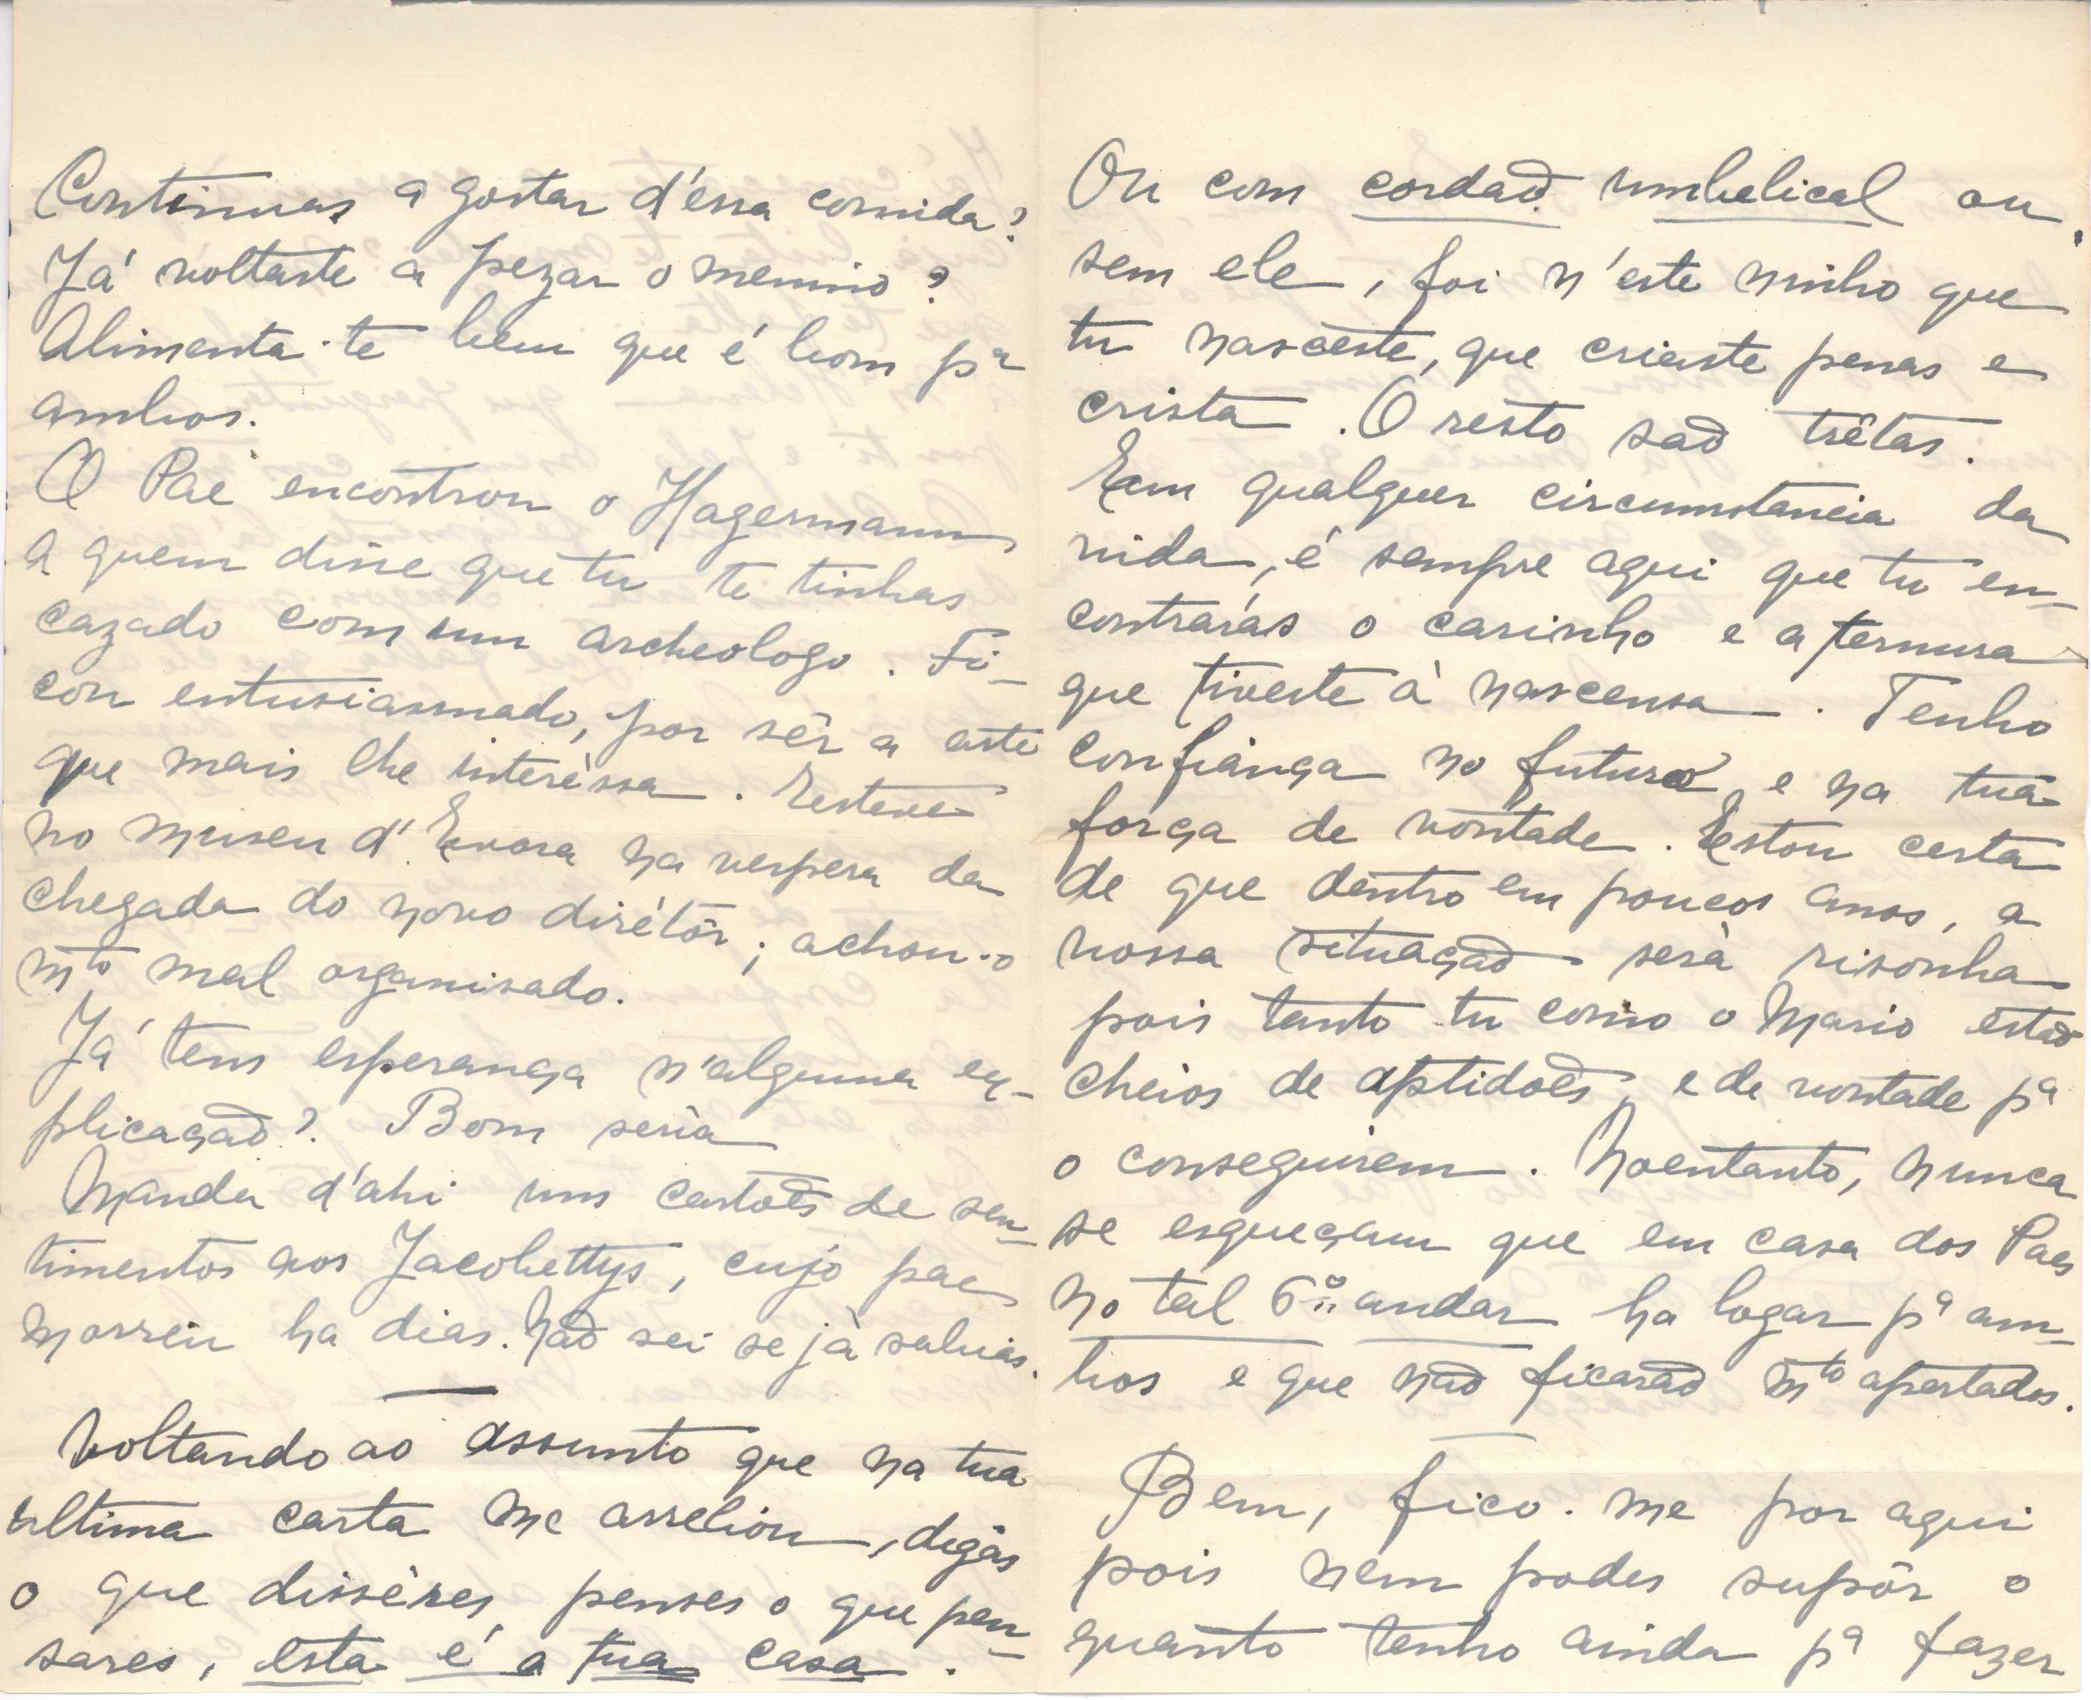 Continuas a gostar d'essa comida?
Já voltaste a pezar o menino?
Alimenta-te bem que é bom pª
ambos.
O Pae encontrou o Hagermann
a quem disse que tu te tinhas
cazado com um archeologo. Fi-
cou entusiasmado, por sêr a arte
que mais lhe interéssa. Esteve
no museu d'Evora na vespera da
chegada do novo dirétôr; achou-o
mto mal organisado.
Já tens esperança n'alguma ex-
plicação? Bom seria
Manda d'ahi uns cartões de sen-
timentos aos Jacobettys, cujo pae
morreu ha dias. Não sei se já sabias.
Voltando ao assunto que na tua
ultima carta me arreliou, digas
o que disséres, penses o que pen-
sares, esta é a tua casa.
Ou com cordão umbelical ou
sem ele, foi n'este ninho que
tu nasceste, que criaste penas e
crista. O resto são trêtas.
Em qualquer circumstancia da
vida, é sempre aqui que tu en-
contrarás o carinho e a ternura
que tiveste à nascensa. Tenho
confiança no futuro, e na tua
força de vontade. Estou certa
de que dentro em poucos anos, a
vossa situação será risonha
pois tanto tu como o Mario estão
cheios de aptidões, e de vontade pª
o conseguirem. Noentanto, nunca
se esqueçam que em casa dos Paes
no tal 6º andar ha logar pª am-
bos e que não ficarão mto apertados.
Bem, fico-me por aqui
pois nem podes supôr o
quanto tenho ainda pª fazer